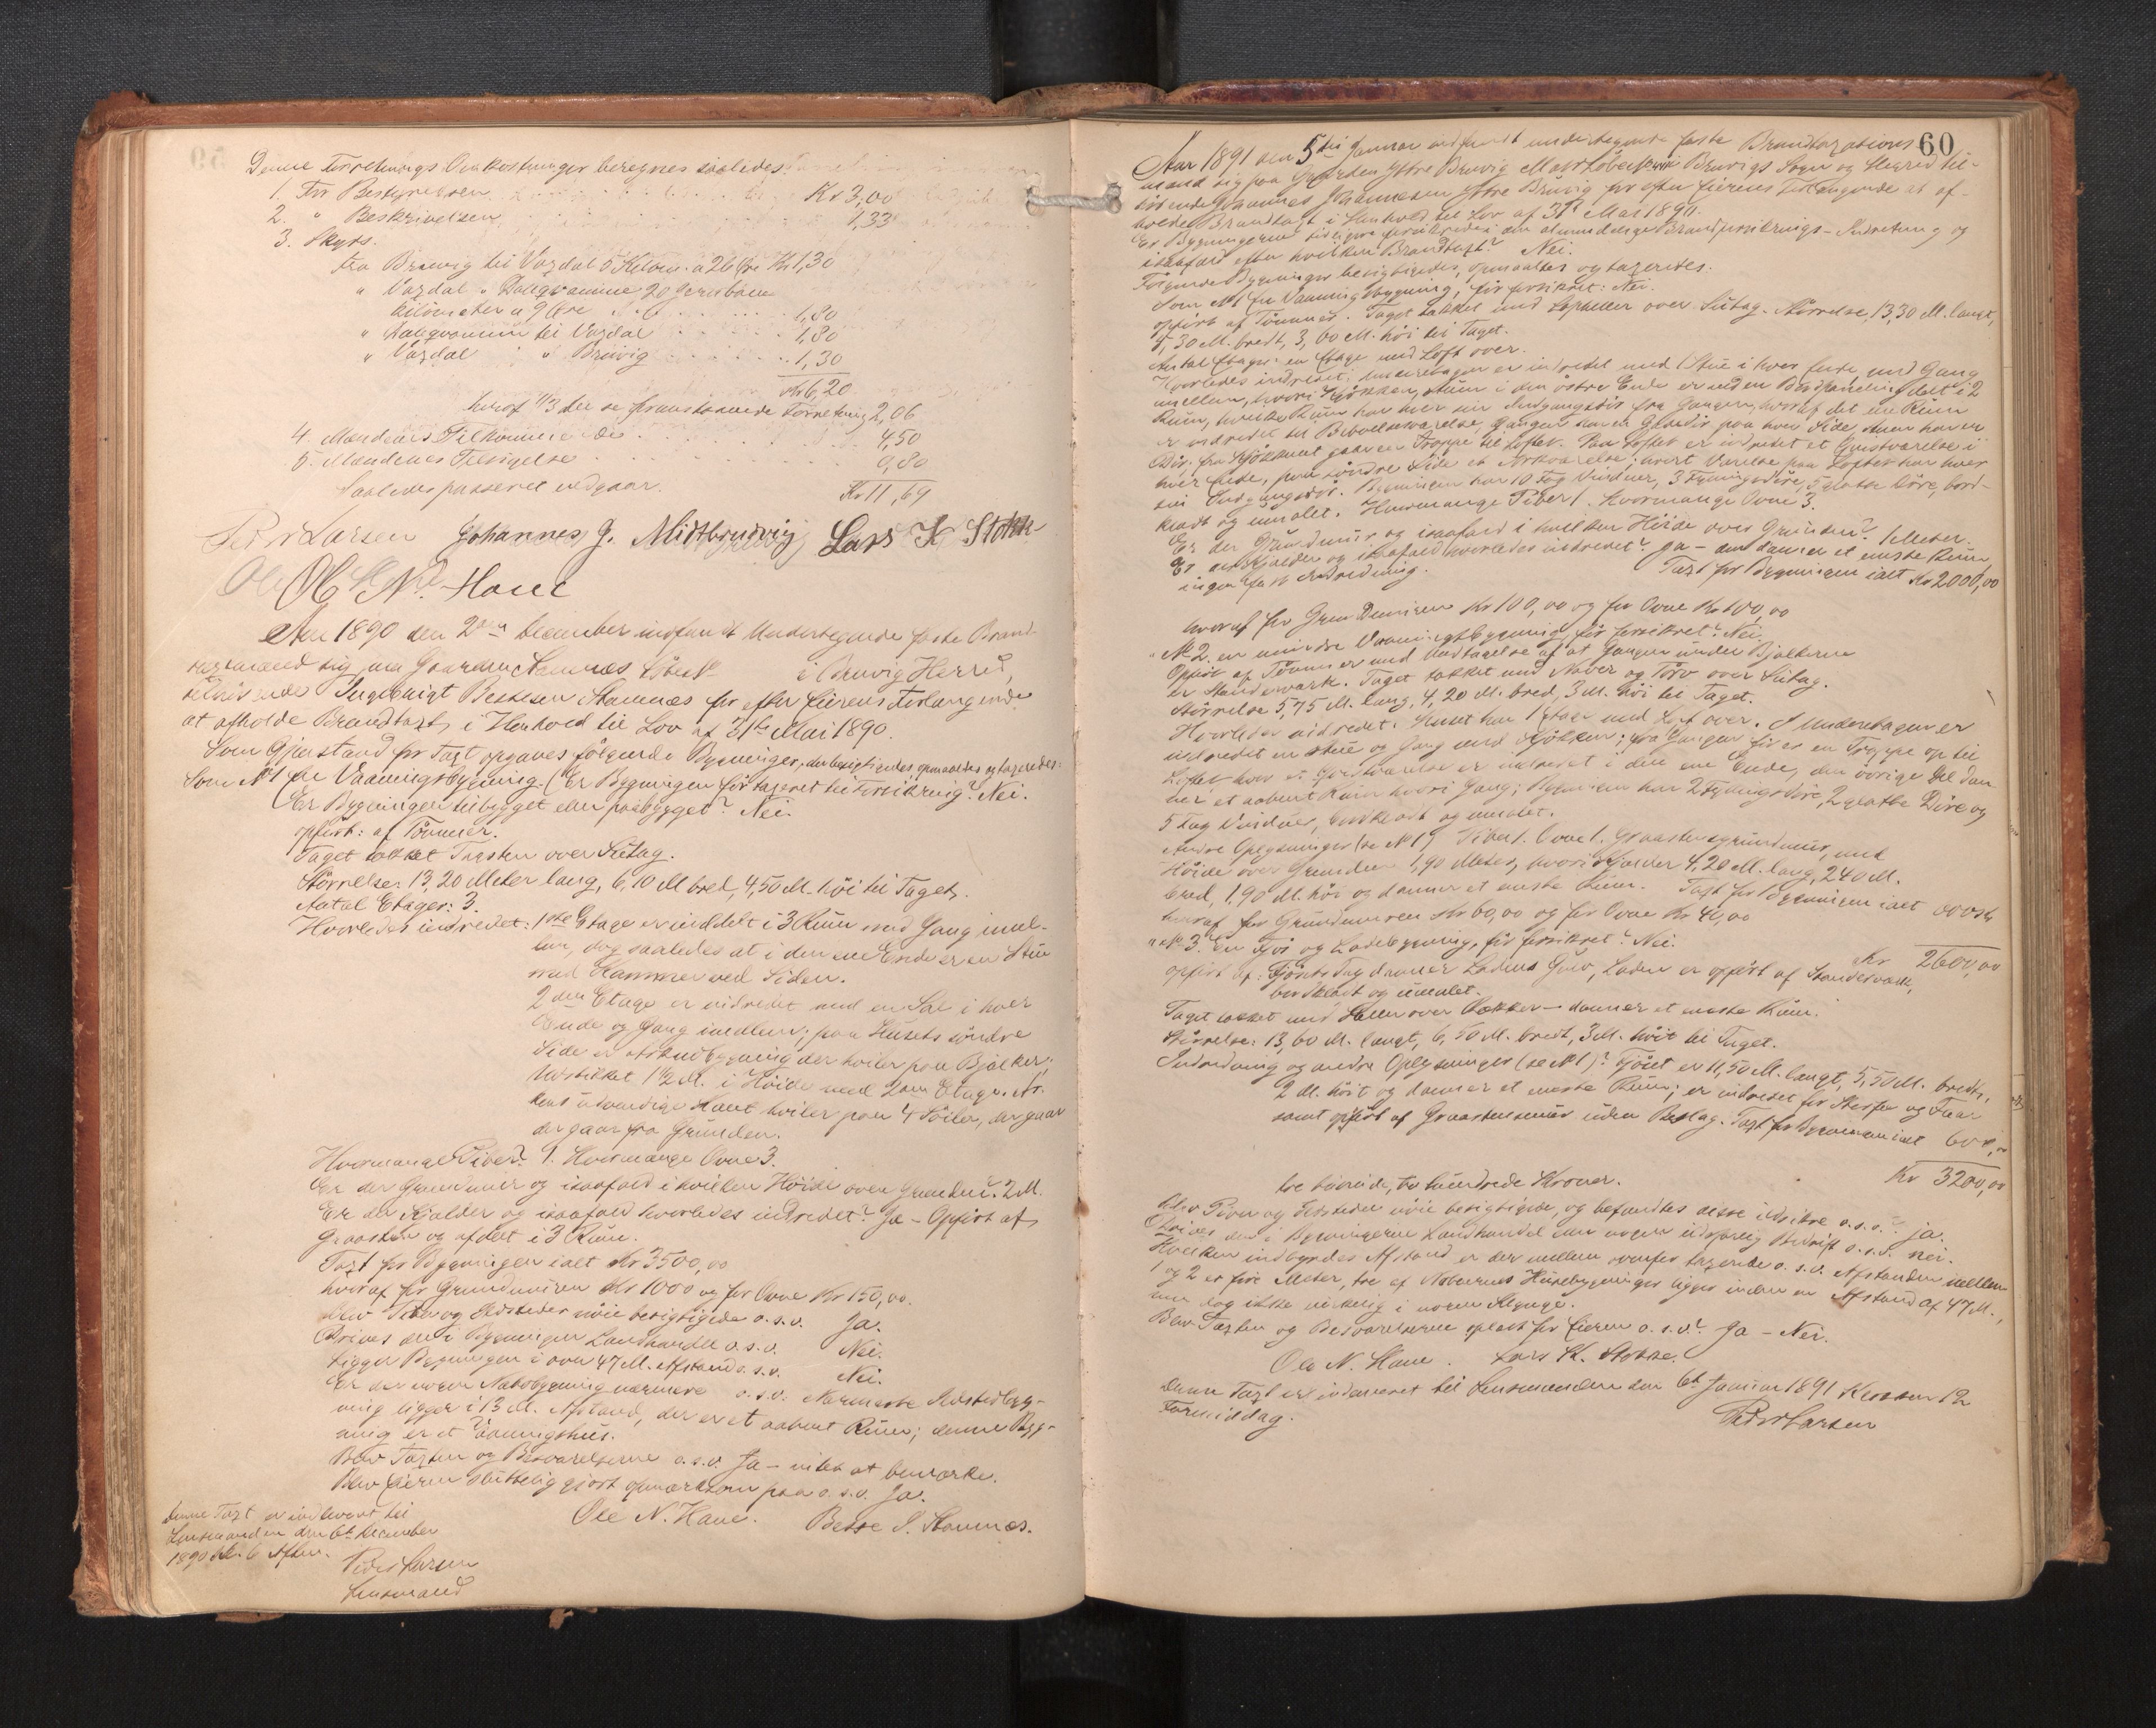 Denne Forretnings Omkostninger beregnes saaledes:
1. For Bestyrelsen Kr 3,00
2. " Beskrivelsen 1,33
3. Skyds.
fra Bruvig til Vaxdal 5 Kilom. a 26 Øre Kr 1,30
" Vaxdal " Dalegvammen 20 Jernbane
kilometer a 9 Øre 1,80
" Dalegvammen til Vaxdal 1,80
" Vaxdal " Bruvig 1,30
Kr 6,20
hvoraf 1/3 der se foranstaaende Forretning 2,06
4. Mændenes Tilkommende 4,50
5. Mændenes Tilsigelse 0,80
Saaledes passeret vedgaar. Kr 11,69
Peder Larsen Johannes J. Midtbruvig Lars K Stokke
Ole N. Hane
Aar 1890 den 2den December indfandt Undertegnede faste Brand-
taxtmænd sig paa Gaarden Stamnæs Løbe № i Bruvig Herred,
tilhørende Ingebrigt Bessesen Stamnæs for efter Eierens Forlangende
at afholde Brandtaxt, i Henhold til Lov af 31te Mai 1890.
Som Gjenstand for Taxt opgaves følgende Bygninger, der besigtigedes, opmaaltes og taxeredes:
Som № 1 en Vaaningsbygning. (Er Bygningen før taxeret til Forsikring? Nei.
(Er Bygningen tilbygget eller paabygget? Nei.
opført: af Tømmer.
Taget tækket Tagsten over Sutag.
Størrelse: 13,20 Meter lang, 6,10 M bred, 4,50 M. høi til Taget.
Antal Etager: 3.
Hvorledes indredet: 1ste Etage er inddelt i 3 Rum med Gang imel-
lem, dog saaledes at i den ene Ende er en Stue
med Kammer ved Siden.
2den Etage er indredet med en Sal i hver
Ende og Gang imellem; paa Husets søndre
Side er Arkudbygning der hviler paa Bjælker,
udstikket 1 1/2 M. i Høide med 2den Etage. Ar-
kens udvendige Kant hviler paa 4 Søiler, der gaar
der gaar fra Grunden.
Hvormange Piber? 1. Hvormange Ovne 3.
Er der Grundmur og isaafald i hvilken Høide over Grunden? 2 M.
Er der Kjælder og isaafald hvorledes indredet? Ja - Opført af
Graasten og afdelt i 3 Rum.
Taxt for Bygningen ialt Kr 3500,00
hvoraf for Grundmuren Kr 1000 og for Ovne Kr 150,00.
Blev Piber og Ildsteder nøie besigtigede o.s.v. Ja.
Drives der i Bygningen Landhandel o.s.v. Nei.
Ligger Bygningen i over 47 M. Afstand o.s.v. Nei.
Er der nogen Nabobygning nærmere o.s.v. Nærmeste Ildstedbyg-
ning ligger i 13 M. Afstand, der er et aabent Rum; denne Byg-
ning er et Vaaningshus.
Blev Taxten og Besvarelserne o.s.v. Ja - intet at bemærke.
Blev Eieren skuttelig gjort opmærksom paa o.s.v. Ja.
Ole N. Hane. Besse I. Stamnæs.
Denne Taxt er indleveret til
Lensmanden den 6te December
1890 Kl. 6 Aften.
Peder Larsen
Lensmand
60
Aar 1891 den 5te Januar indfandt undertegnede faste Brandtaxations
mænd sig paa Gaarden Ytre Bruvig Matr Løbe № i Bruvigs Sogn og Herred til-
hørende Johannes Johannesen Ytre Bruvig for efter Eierens Forlangende at af-
holde Brandtaxt i Henhold til Lov af 31te Mai 1890.
Er Bygningerne tidligere forsikrede i den almindelige Brandforsikrings-Indretning og
isaafald efter hvilken Brandtaxt? Nei.
Følgende Bygninger besigtigedes, opmaaltes og taxeredes.
Som № 1 en Vaaningsbygning, før forsikret: Nei.
opført af Tømmer. Taget tækket med Skifer over Sutag. Størrelse, 13,30 M. langt,
5,30 M. bredt, 3,60 M. høi til Taget.
Antal Etager: en Etage med Loft over.
Hvorledes indredet; Underetagen er indredet med 1 Stue i hver Ende, med Gang
imellem, hvori Kjøkken, Stuen i den østre Ende er ved en Bordpaneling delt i 2
Rum, hvilke Rum har hver sin Indgangsdør fra Gangen, hvoraf det ene Rum
er indredet til Beboelsesværelse, Gangen har en Gadedør paa hver Side, Stuen har en
Dør, fra Kjøkkenet gaar en Trappe til Loftet. Paa Loftet er indredet et Gjestværelse i
hver Ende, paa søndre Side et Arkværelse, hvert Værelse paa Loftet har hver
sin Indgangsdør. Bygningen har 10 Fag Vinduer, 3 Fyldingsdøre, 5 glatte Døre, bord-
klædt og umalet. Hvormange Piber 1. Hvormange Ovne 3.
Er der Grundmur og isaafald i hvilken Høide over Grunden? 1 Meter.
Er der Kjælder og isaafald hvorledes indredet? Ja - der danner et eneste Rum
ingen fast Indredning. Taxt for Bygningen ialt Kr 2000,00
hvoraf for Grundmuren Kr 100,00 og for Ovne Kr 100,00
" № 2. en mindre Vaaningsbygning, før forsikret? Nei.
Opført af Tømmer med Undtagelse af at Gangen under Bjælkerne
er Standerværk. Taget tækket med Næver og Tørv over Sutag.
Størrelse 5,75 M. lang, 4,20 M. bred, 3 M. høi til Taget.
Hvorledes indredet. Huset har 1 Etage med Loft over. I Underetagen er
indredet en Stue og Gang med Kjøkken; fra Gangen fører en Trappe op til
Loftet hvor et Gjestværelse er indredet i den ene Ende, den øvrige Del dan-
ner et aabent Rum hvori Gang; Bygningen har 2 Fyldingsdøre, 2 glatte Døre og
5 Fag Vinduer, bordklædt og umalet.
Andre Oplysninger (se № 1) Piber 1. Ovne 1. Graastensgrundmur, med
Høide over Grunden 1,90 Meter, hvori Kjælder 4,20 M. lang, 2,40 M.
bred, 1,90 M. høi og danner et eneste Rum. Taxt for Bygningen ialt
hvoraf for Grundmuren Kr 60,00 og for Ovne Kr 40,00
" № 3. En Fjøs og Ladebygning, før forsikret? Nei. Kr 2600,00
opført af: Fjøsets Tag danner Ladens Gulv, Laden er opført af Standerværk,
bordklædt og umalet.
Taget tækket med Heller over Lækter - danner et eneste Rum.
Størrelse: 13,60 M. langt, 6,50 M. bredt, 3 M. høit til Taget.
Indredning og andre Oplysninger (se № 1)? Fjøset er 11,50 M. langt, 5,50 M. bredt,
2 M. høit og danner et eneste Rum; er indredet for Storfe og Faar
samt opført af Graastensmur uden Beslag. Taxt for Bygningen ialt 600,00
Kr 3200,00
tre tusinde, to hundrede Kroner.
Blev Piber og Ildsteder nøie besigtigede, og befandtes disse ildsikre o.s.v. ja.
Drives der i Bygningerne Landhandel eller nogen ildsfarlig Bedrift o.s.v. Nei.
Hvilken indbyrdes Afstand er der mellem ovenfor taxerede o.s.v. Afstanden mellem
1 og 2 er fire Meter, tre af Naboernes Husebygninger ligger inden en Afstand af 47 M.,
men dog ikke
Blev Taxten og Besvarelserne oplæst for Eieren o.s.v? Ja - Nei.
Ole N. Hane. Lars K. Stokke.
Denne Taxt er indleveret til Lensmanden den 6te Januar 1891 Klokken 12
Formiddag.
Peder Larsen